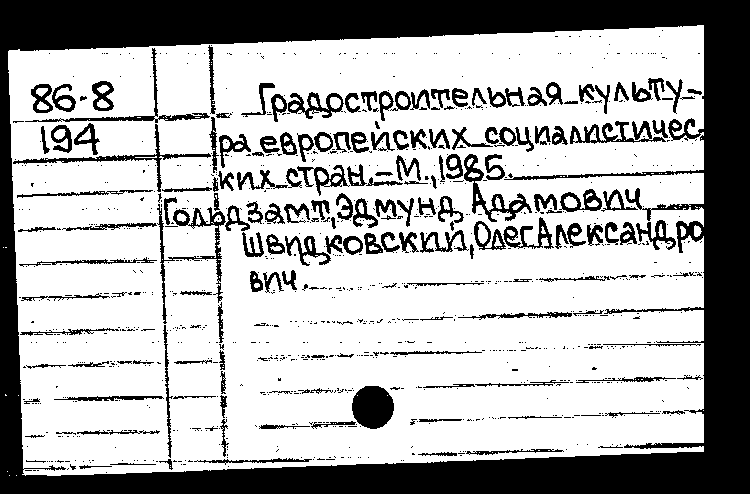 86-8 Градостроительная культу-
194 ра европейских социалистичес-
ких стран.-М.,1985.
Гольдзамт,Эдмунд Адамович
Швидковский,Олег Александро
вич.